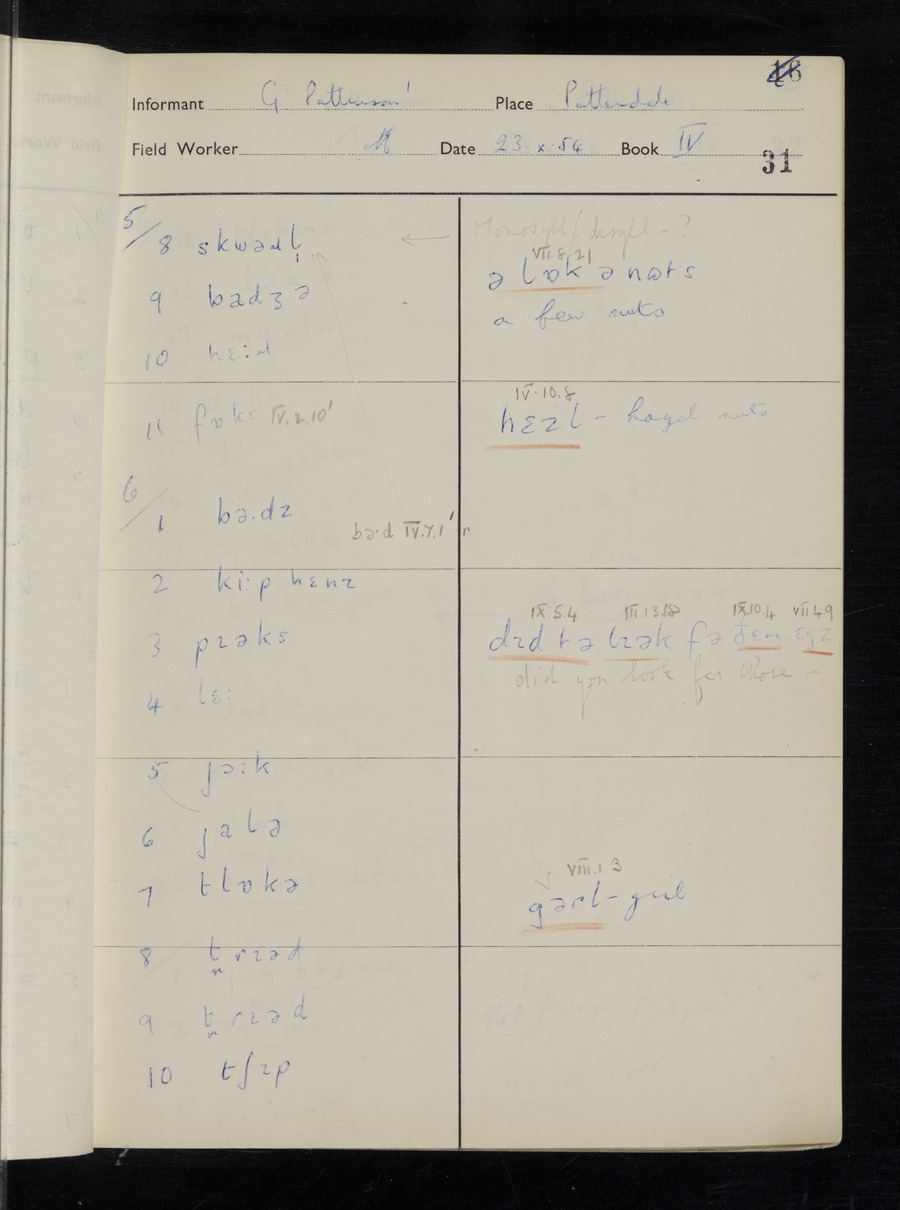 Informant G Pattinson' Place Patterdale
Field Worker Date 23.x.54 Book IV
31
5/
8 skwəɹl̩
Monosyll/disyll - ?
VII.8.21
ə lɒk ə nɷts
9 badʒə
a few nuts
10 hɛ:ɹ
IV.10.8
11 fɒks IV.2.10'
hɛzl - hazel nuts
6/
1 bə.dz
bə.d IV.7.1' r
2 ki:p hɛnz
IX.5.4 III.13.18 IX.10.4 VII.4.9
3 prəks
dɪd tə lɪək fə ðɛm ɛgz
did you look for those -
4 lɛ:
5 jɔ:k
6 jalə
7 tlɒkə
VIII.1.3
gəɾl - girl
8 t̪rɪəd
9 t̪rɪəd
10 tʃɪp